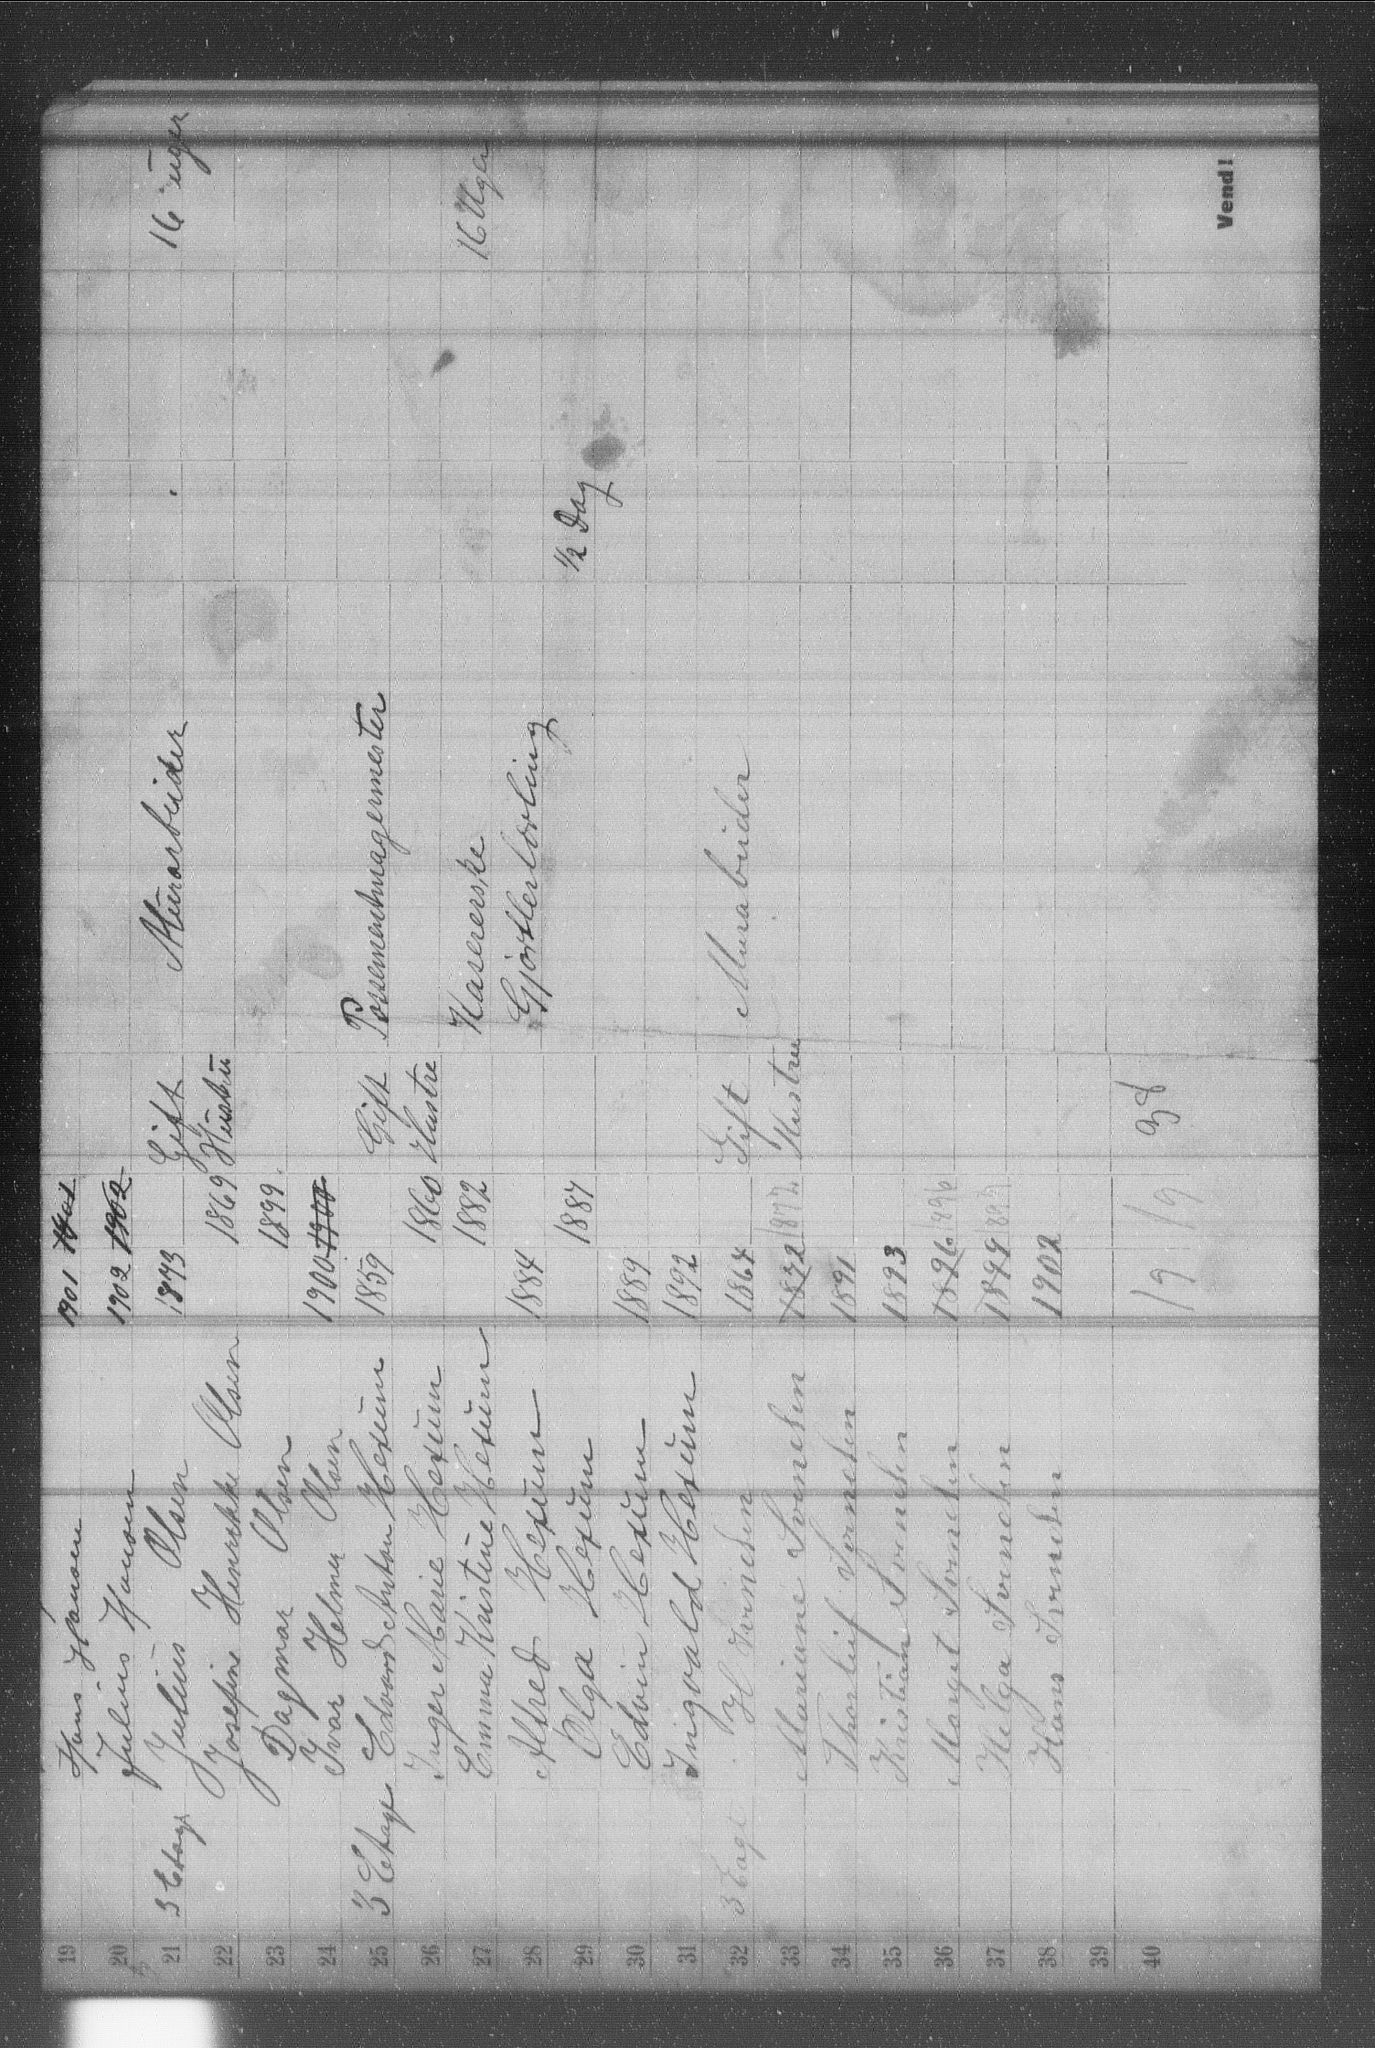 19 Hans Hansen 1901 1901
20 Julius Hansen 1902 1902
21 3 Etage Julius Olsen 1873 Gift Murarbeider 16 uger
22 Josefine Henrikke Olsen 1869 Hustru
23 Dagmar Olsen 1899.
24 Ivar Helmer Olsen 1900 1900
25 3 Etage Edvard Anton Hexum 1859 Gift Possementmagermester
26 Inger Marie Hexum 1860 Hustru
27 Emma Kristine Hexum 1882 Kasererske 16 Uger
28 Alfred Hexum 1884 Gjørtlerlærling
29 Olga Hexum 1887 1/2 Dag
30 Edvin Hexum 1889
31 Ingvald Hexum 1892
32 3 Etage H Svendsen 1864 Gift Murabeider
33 Mariane Svendsen 1872 1872 Hustru
34 Thorleif Svendsen 1891
35 Kristian Svendsen 1893
36 Margit Svendsen 1896 1896
37 Helga Svendsen 1899 1899
38 Hans Svendsen 1902
39
40 19 19 38
Vend!